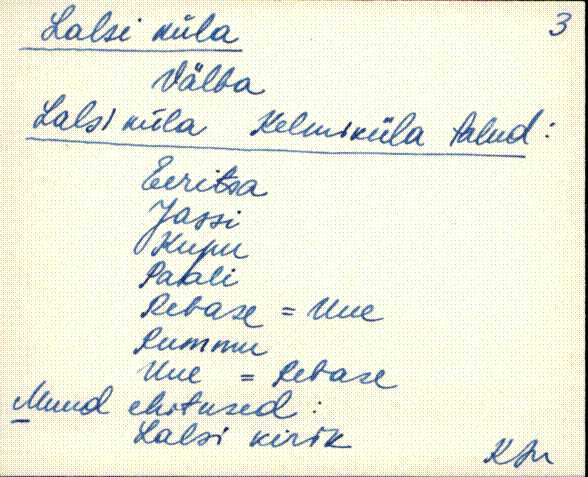 Lalsi küla 3
Välba
Lalsi küla Kelmiküla talud:
Eeritsa
Jassi
Kupu
Patali
Rebase = Uue
Rummu
Uue = Rebase
Muud ehitused:
Lalsi kirik